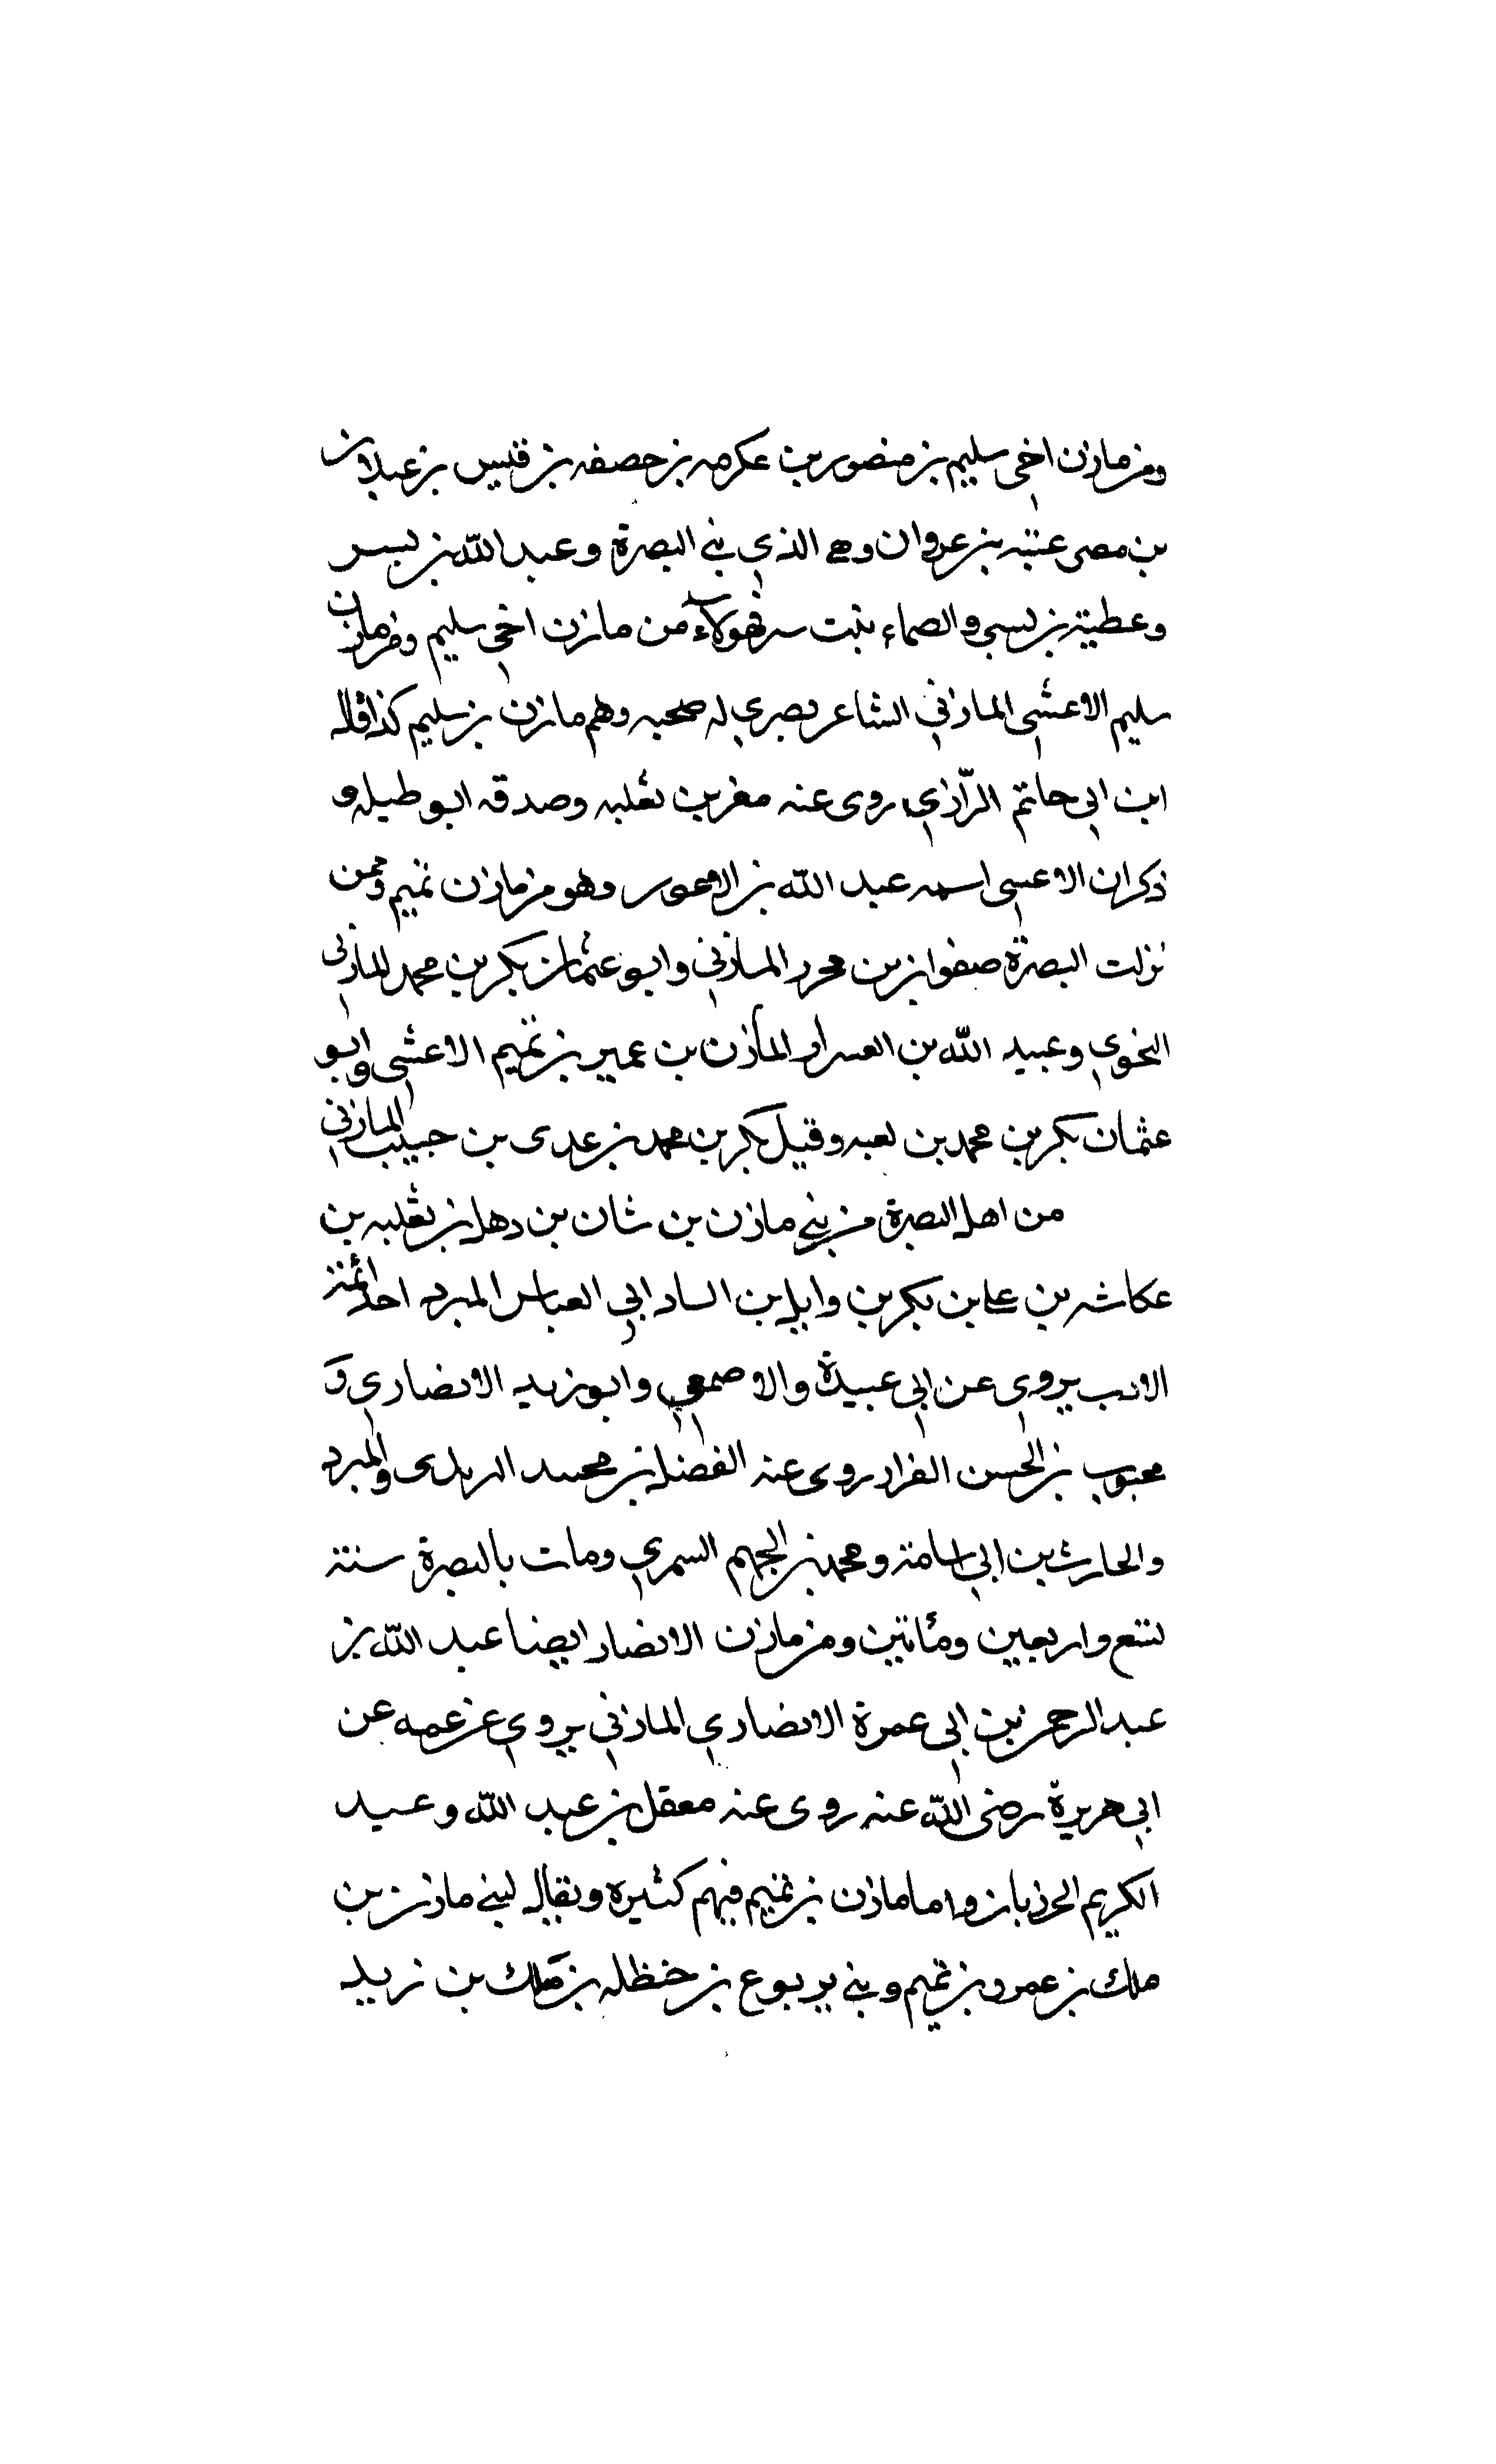 ومن مازن اخي سليم بن منصور بن عكرمه بن حصفه بن قيس بن عيلان
بن مصى عتبه بن عروان وهو الذي بنى البصرة وعبد الله بن بسر
وعطية بن بسى والصماء بنت سر فهولاء من مازن اخي سليم ومن مازن
سليم الاعشى المازني الشاعر بصري له صحبه وهم مازن بن سليم كذا قاله
ابن ابي حاتم الرّازي روى عنه معن بن ثعلبه وصدقه ابو طيله و
ذكر ان الاعسى اسمه عبد الله بن الاعور وهو من مازن تميم وممن
نزلت البصرة صفوان بن محرر المازني وابو عثمان بكر بن محمد المازني
النحوي وعبيد الله بن العسرار المازن بن عمير بن تميم الاعشى وابو
عثمان بكر بن محمد بن لعبه وقيل بكر بن محمد بن عدى بن حبيب المازني
من اهل البصرة من بني مازن بن شان بن دهل بن ثعلبه بن
عكاشه بن على بن بكر بن وايل بن الساد ابي العباس المبرد احد ائمة
الادب يروي عن ابي عبيدة والاصمعي وابو زيد الانصاري و
محبوب بن الحسن الفرار روى عنه الفضل بن محمد اليزيدى والمبرد
والحارث بن ابي اسامة ومحمد بن الجهم السمري ومات بالبصرة سنة
تسع واربعين ومأتين ومن مازن الانصار ايضا عبد الله بن
عبد الرحمن بن ابي عمرة الانصاري المازني يروي عن عمه عن
ابي هريرة رضى الله عنه روى عنه معقل بن عبد الله وعبد
الكريم الحرذبان واما مازن بن تميم فيهم كثيره ويقال لبني مازن بن
ملك بن عمرو بن تميم وبني يربوع بن حنظله بن ملك بن زيد